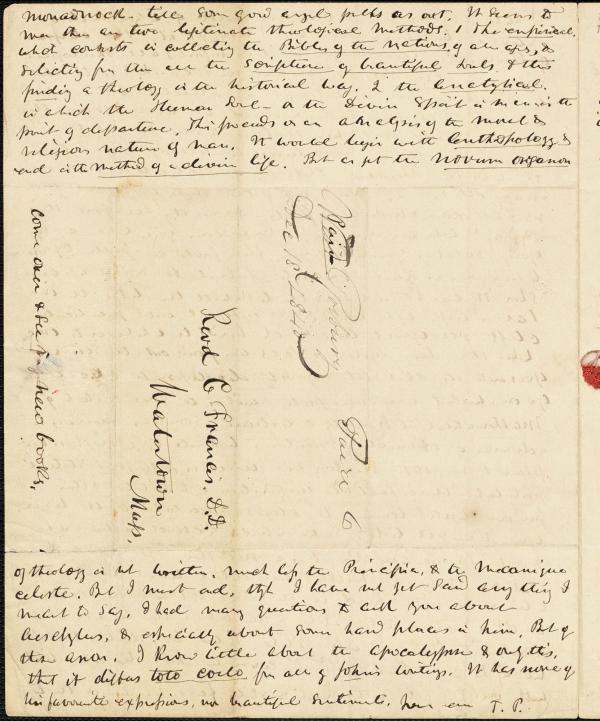 Monadnock till some good angel pulls us out. It seems to
me there are two legitimate theological methods. 1 The empirical.
which consists in collecting the Bibles of the nations, of all ages, &
selecting from them all the Scripture of beautiful Souls, & thus
finding a theology in the historical way. 2 the analytical.
in which the Human Soul — or the Divine Spirit in men is the
point of departure. This proceeds on an analysis of the moral &
religious nature of man. It would begin with anthropology &
end in the method of a divine life. But as yet the novum organon
come over & see my new books.
Revd C Francis. D.D.
Watertown
Mass.
Paid
Dec 18 1840
6
of theology is not written. much less the Principia, & the Mecanique
celeste. But I must end, tho I have not yet said any thing I
meant to say. I had many questions to ask you about
Aeschylus, & especially about some hard places in him, But of
this anon. I know little about the apocalypse & only this,
that it differs toto coelo from all of John's writings. It has none of
his favourite expressions, nor beautiful sentiments. T. P.